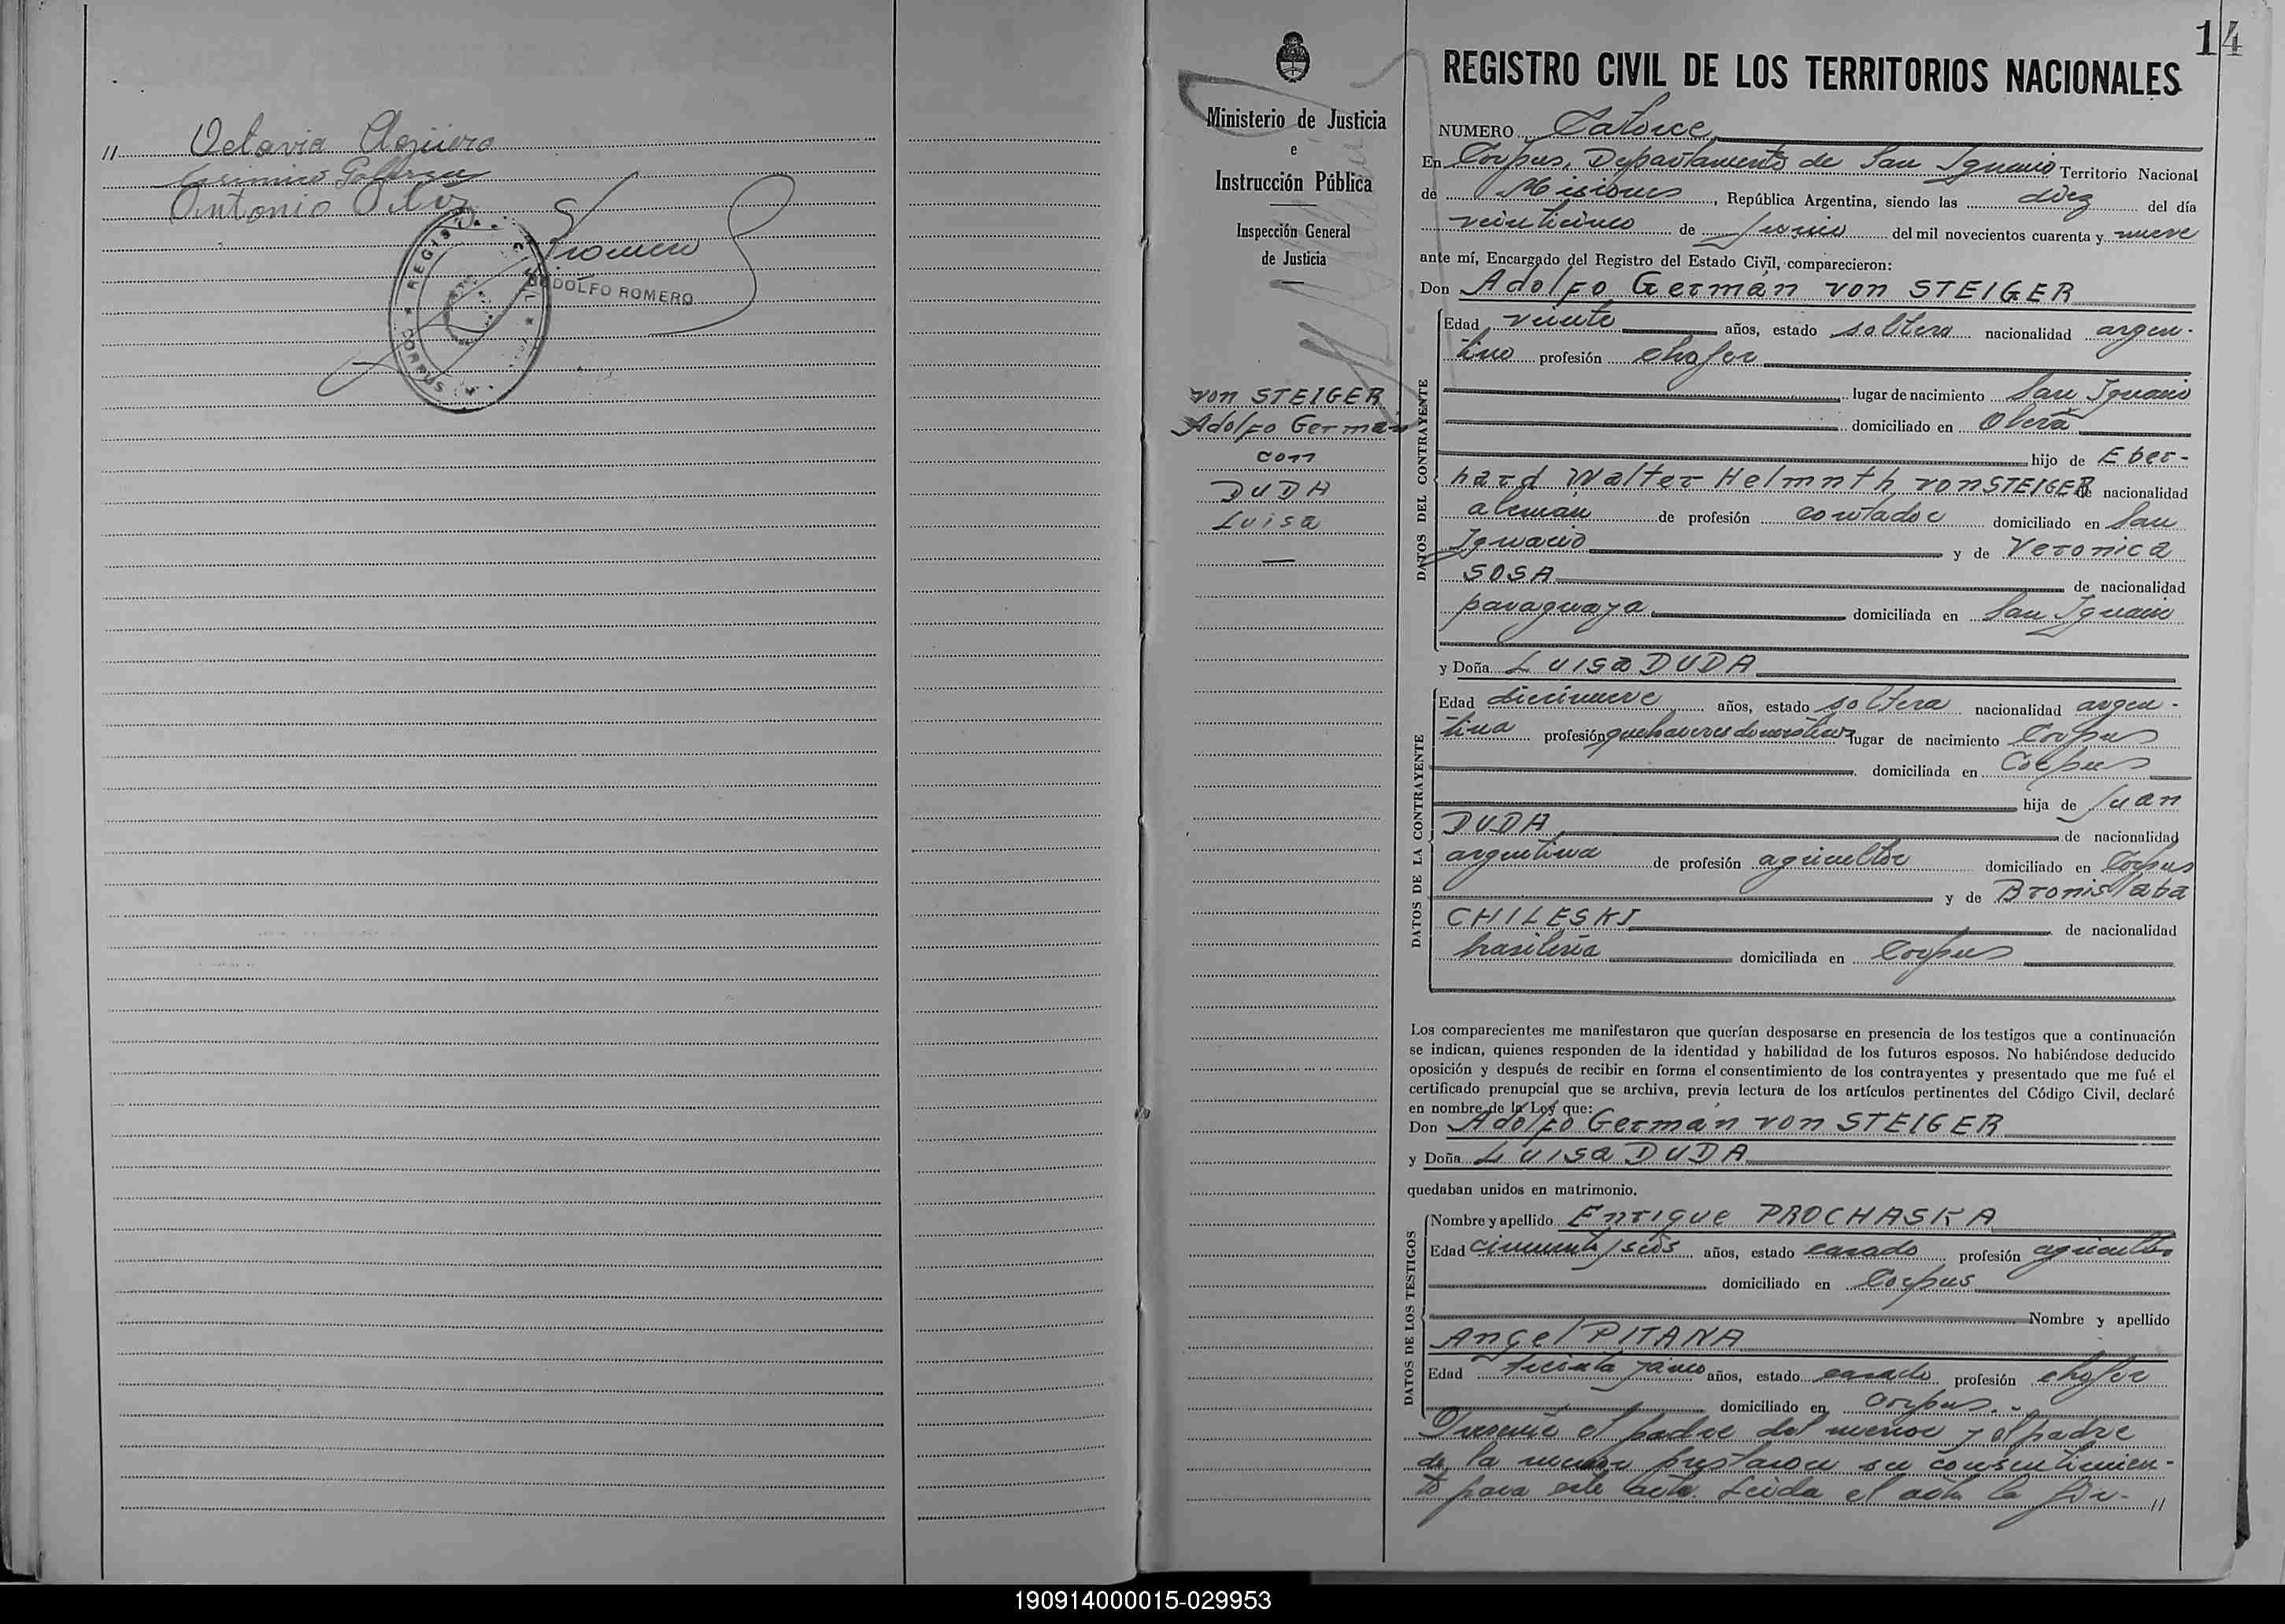 // Octavia Agüero
Antonio
Romero
RODOLFO ROMERO
REGIS
CORPUS
14
Ministerio de Justicia
e
Instrucción Pública
Inspección General
de Justicia
von STEIGER
Adolfo Germán
con
DUDA
Luisa
REGISTRO CIVIL DE LOS TERRITORIOS NACIONALES
NUMERO Catorce
En Corpus, Departamento de San Ignacio Territorio Nacional
de Misiones, República Argentina, siendo las diez del día
veinticinco de Junio del mil novecientos cuarenta y nueve
ante mí, Encargado del Registro del Estado Civil, comparecieron:
Don Adolfo Germán von STEIGER
DATOS DEL CONTRAYENTE
Edad veinte años, estado soltero nacionalidad argen-
tino profesión chofer
lugar de nacimiento San Ignacio
domiciliado en Oberá
hijo de Eber-
hard Walter Helmnth von STEIGER de nacionalidad
alemán de profesión contador domiciliado en San
Ignacio y de Veronica
SOSA de nacionalidad
paraguaya domiciliada en San Ignacio
y Doña Luisa DUDA
DATOS DE LA CONTRAYENTE
Edad diecinueve años, estado soltera nacionalidad argen-
tina profesión quehaceres domésticos lugar de nacimiento Corpus
domiciliada en Corpus
hija de Juan
DUDA de nacionalidad
argentina de profesión agricultor domiciliado en Corpus
y de Bronislaba
CHILESKI de nacionalidad
brasileña domiciliada en Corpus
Los comparecientes me manifestaron que querían desposarse en presencia de los testigos que a continuación
se indican, quienes responden de la identidad y habilidad de los futuros esposos. No habiéndose deducido
oposición y después de recibir en forma el consentimiento de los contrayentes y presentado que me fué el
certificado prenupcial que se archiva, previa lectura de los artículos pertinentes del Código Civil, declaré
en nombre de la Ley que:
Don Adolfo Germán von STEIGER
y Doña Luisa DUDA
quedaban unidos en matrimonio.
DATOS DE LOS TESTIGOS
Nombre y apellido Enrique PROCHASKA
Edad cincuenta y seis años, estado casado profesión agricultor
domiciliado en Corpus
Nombre y apellido
Angel PITANA
Edad treinta y cinco años, estado casado profesión chofer
domiciliado en Corpus.
Presente el padre del menor y el padre
de la menor prestaron su consentimien-
to para este acto. Leida el acta la fir- //
190914000015-029953